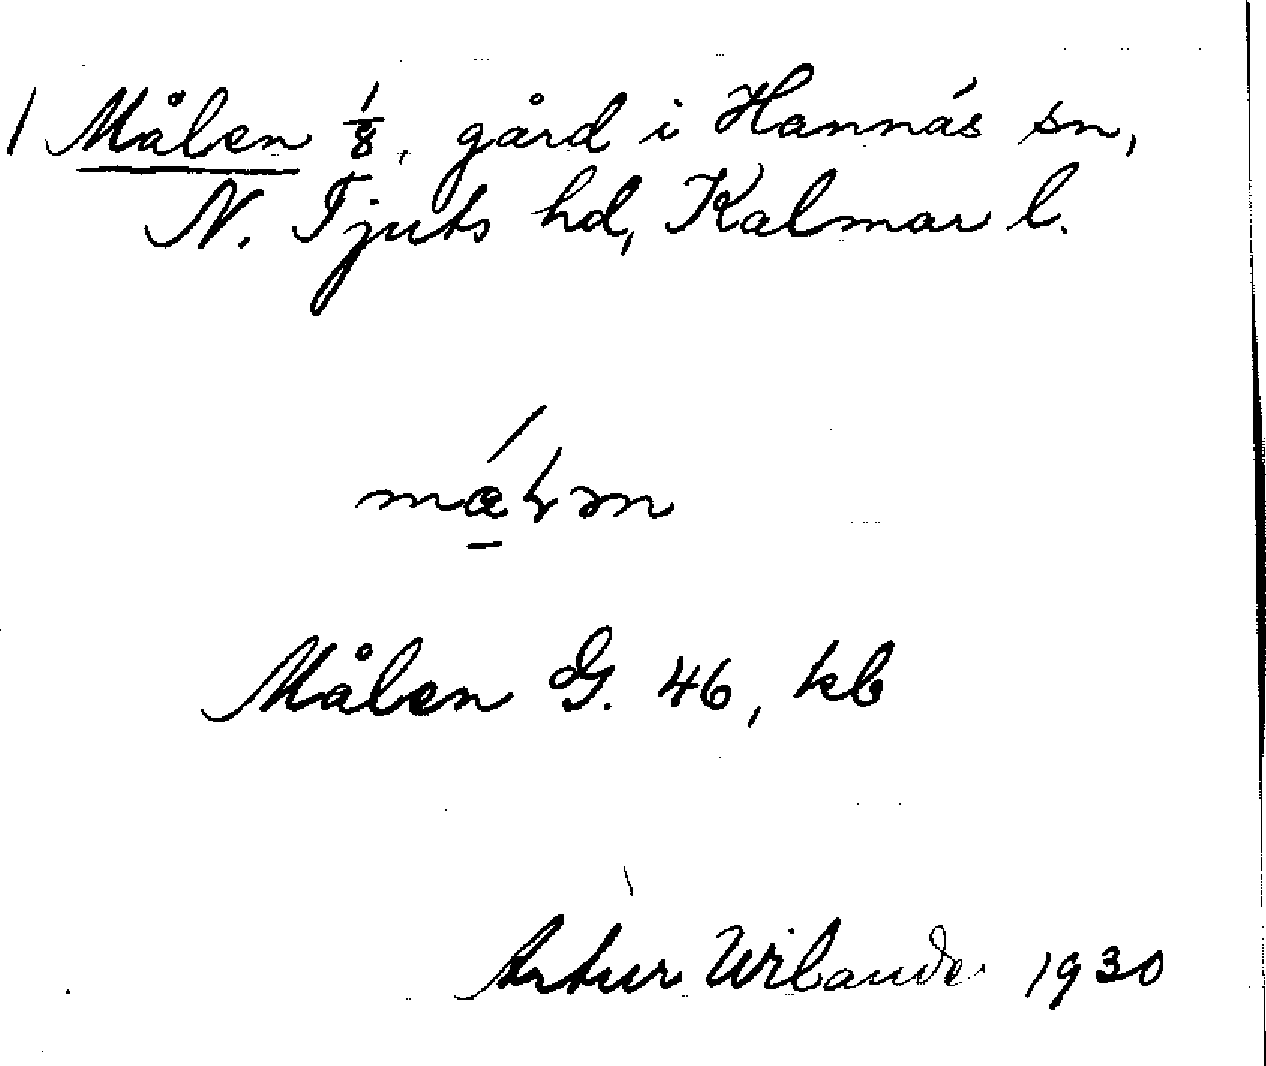 1 Målen 1/8, gård i Hannäs sn,
N. Tjusts hd, Kalmar l.
Målen G. 46, kb
Artur Wilander 1930